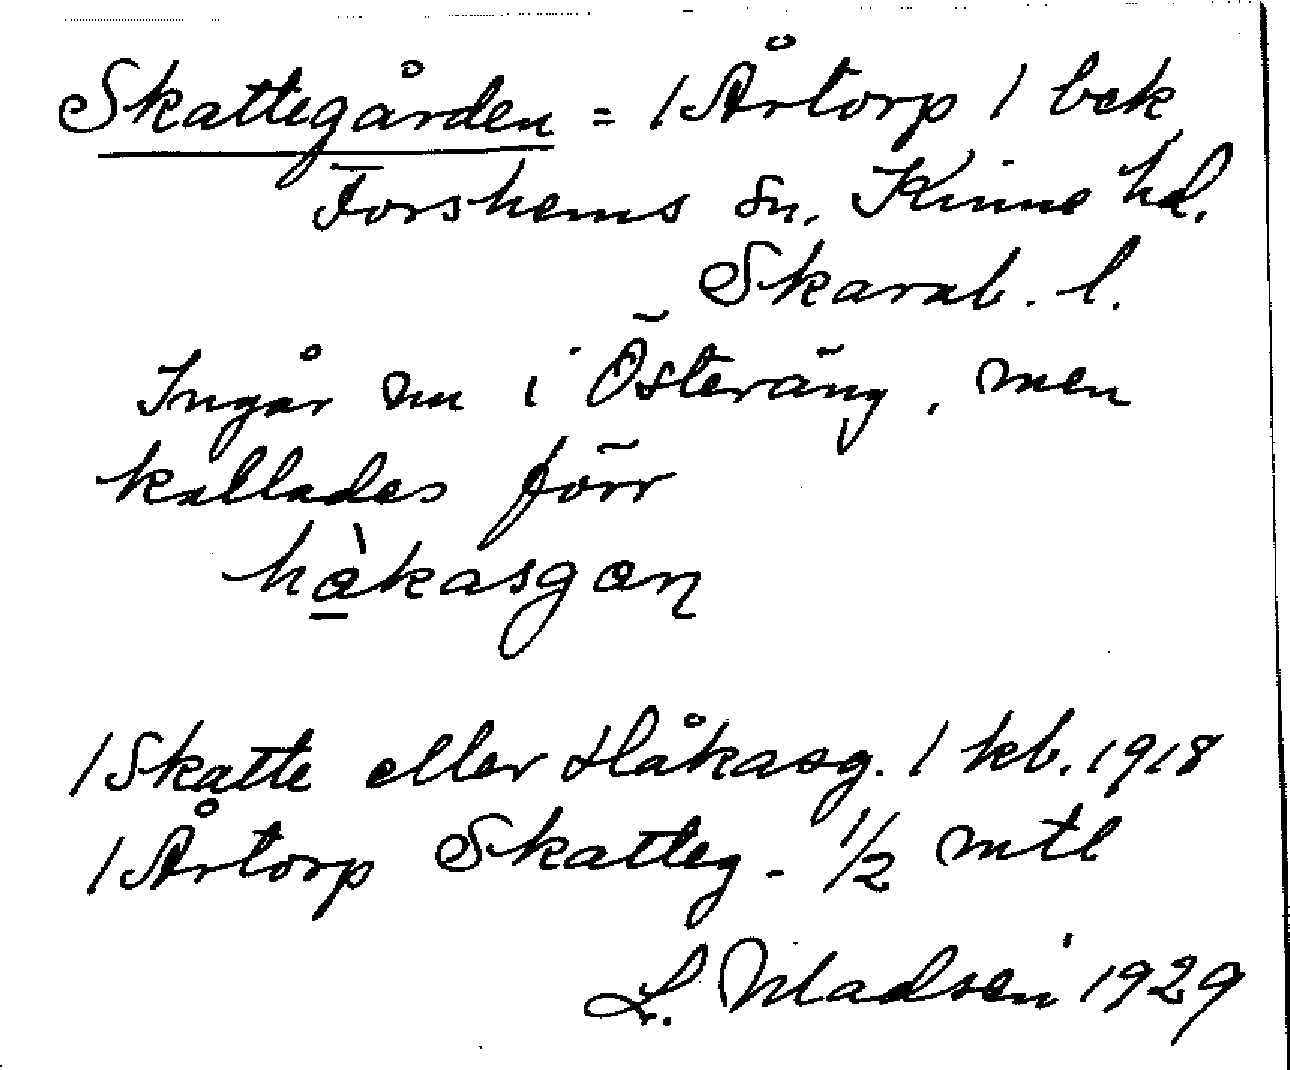 Skattegården = / Årtorp / bek
Forshems sn, Kinne hd.
Skarab. l.
Ingår nu i Österäng, men
kallades förr
hàkasgaɳ
/ Skatte eller Håkasg. / kb. 1918
/ Årtorp Skatteg - 1/2 mtl
L. Madsén 1929